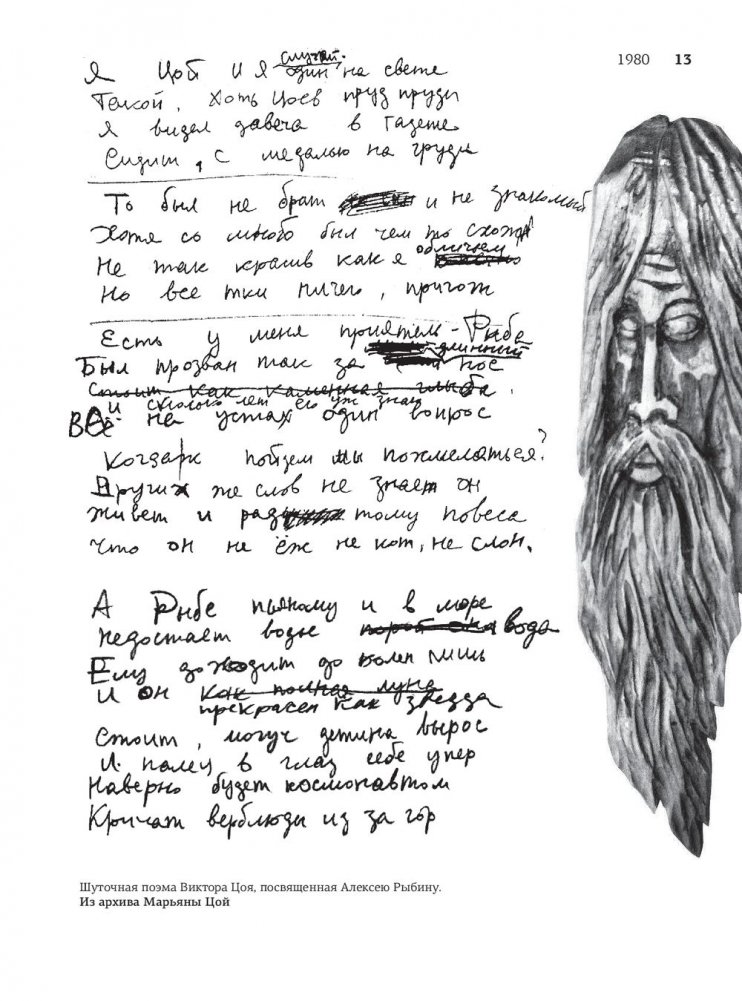 1980 13
Я Цой и я случай один на свете
Такой, хоть Цоев пруд пруди
Я видел давеча в газете
Сидит, с медалью на груди
То был не брат и не знакомый
Хотя со много был чем то схож
Не так красив как я обличьем
Но все тки ничего, пригож
Есть у меня приятель - Рыба
Был прозван так за длинный нос
стоит как каменная глыба.
и сколько лет его уж знаю
Всё на устах один вопрос
Когда пойдем мы похмеляться?
Других же слов не знает он
живет и рад тому повеса
Что он не ёж не кот, не слон.
А Рыбе пьяному и в море
недостает воды вода
Ему доходит до колен лишь
И он как полная луна
прекрасен как звезда
Стоит, могуч детина вырос
И палец в глаз себе упер
Наверно будет космонавтом
Кричат верблюды из за гор
Шуточная поэма Виктора Цоя, посвященная Алексею Рыбину.
Из архива Марьяны Цой